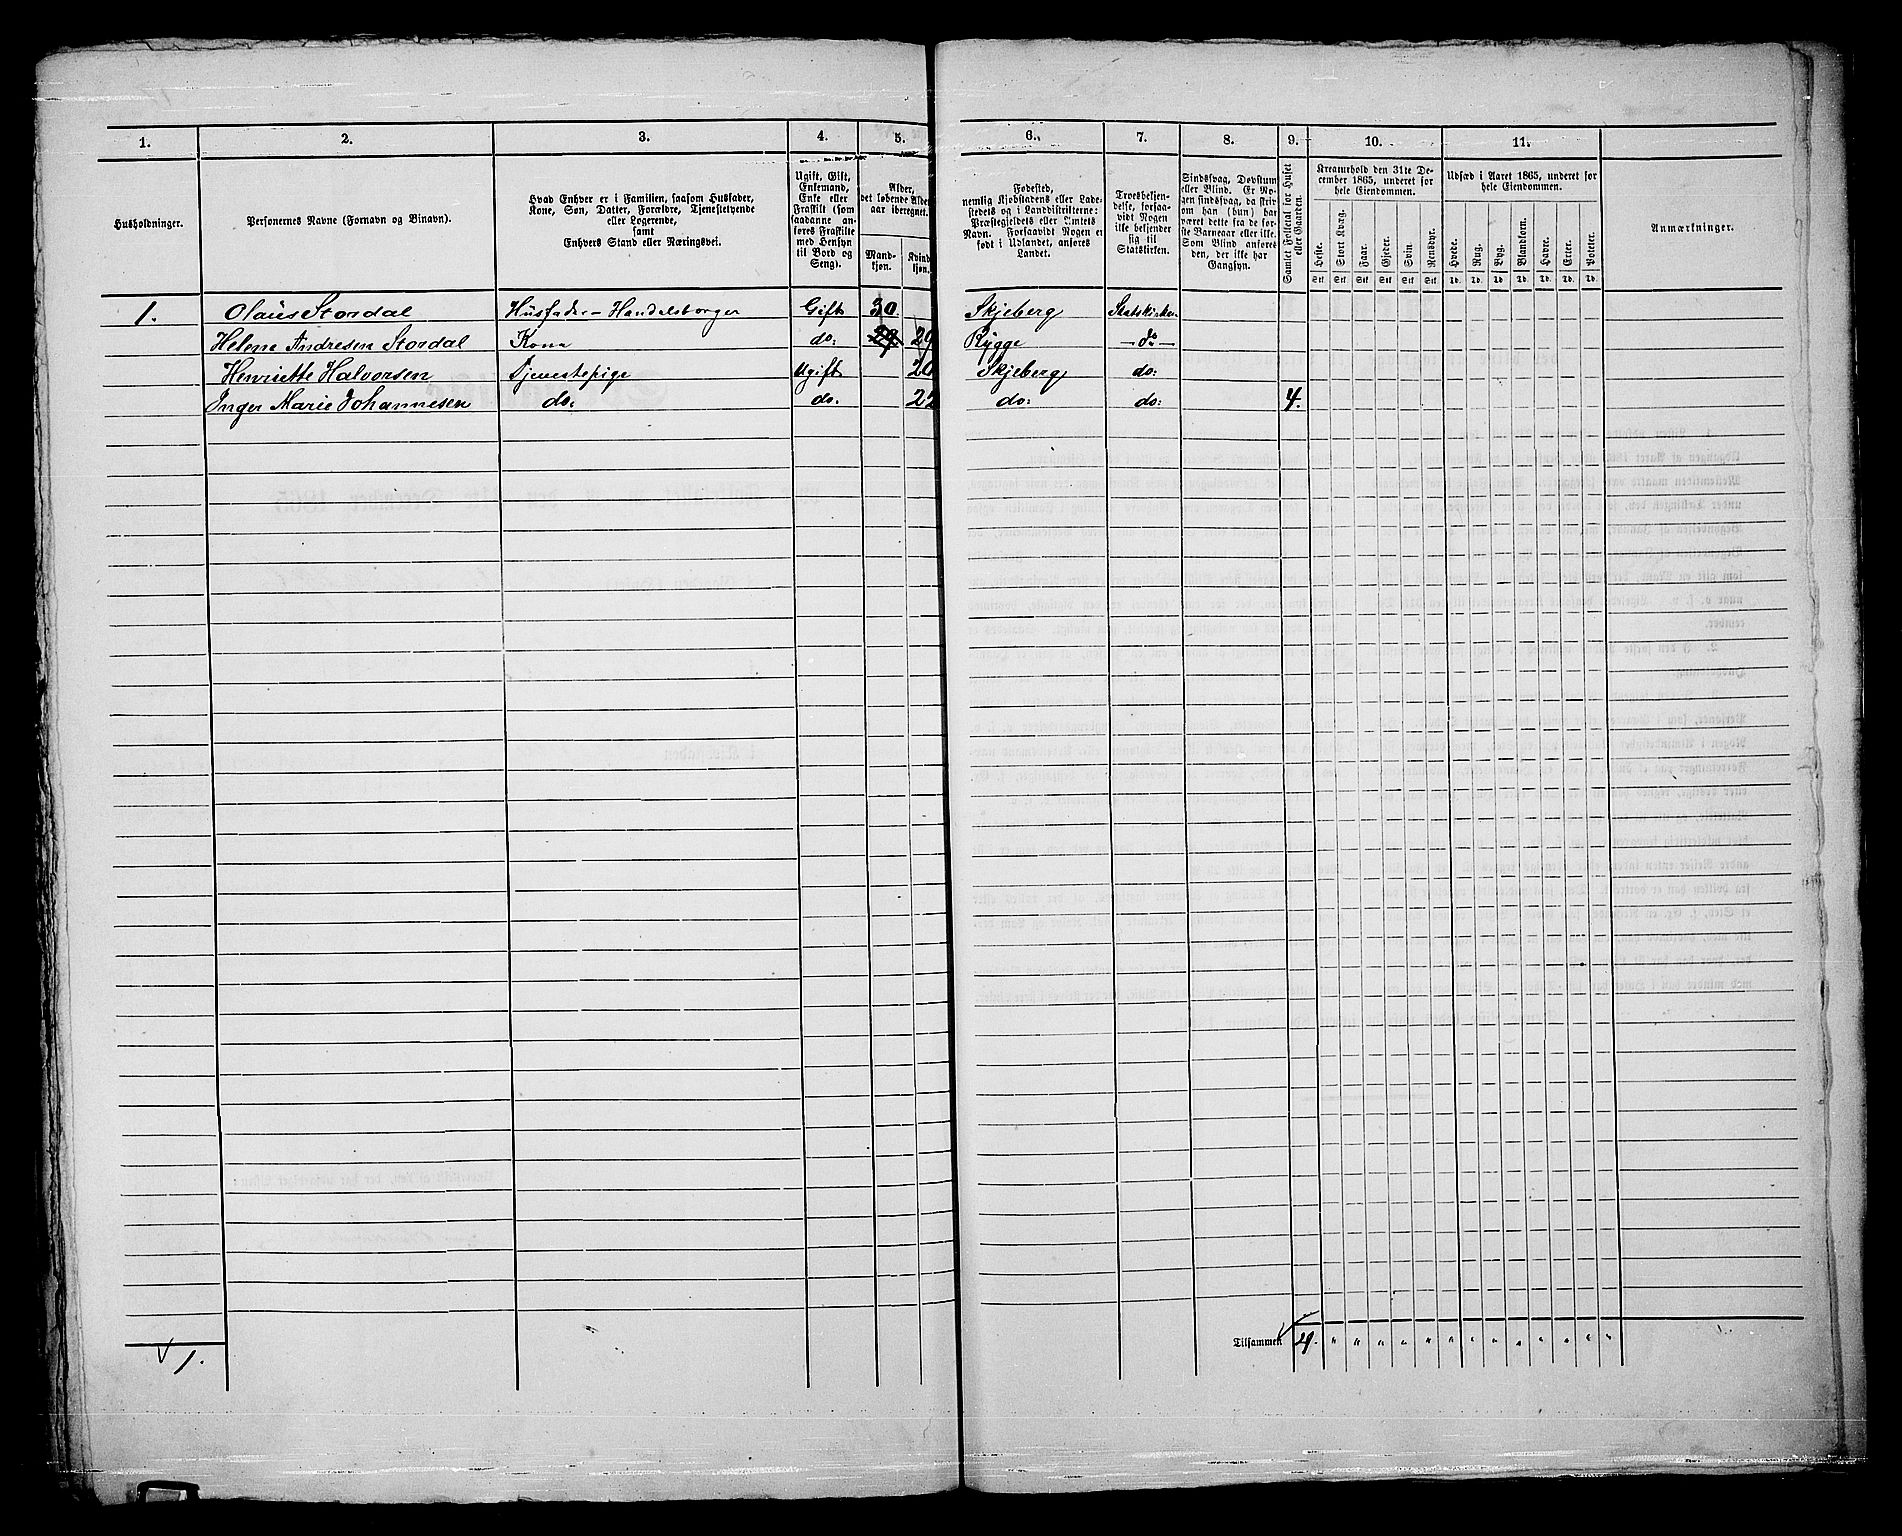 1. 2. 3. 4. 5. 6. 7. 8. 9. 10. 11.
Husholdninger.
Personernes Navne (Fornavn og Binavn).
Hvad Enhver er i Familien, saasom Husfader,
Kone, Søn, Datter, Forældre, Tjenestetyende
eller Logerende,
samt
Enhvers Stand eller Næringsvei.
Ugift, Gift,
Enkemand,
Enke eller
Fraskilt (som
saadanne an-
føres Fraskilte
med Hensyn
til Bord og
Seng).
Alder,
det løbende Alders-
aar iberegnet.
Mand-
kjøn.
Kvind-
kjøn.
Fødested,
nemlig Kjøbstadens eller Lade-
stedets og i Landdistrikterne:
Præstegjeldets eller Amtets
Navn. Forsaavidt Nogen er
født i Udlandet, anføres
Landet.
Troesbekjen-
delse, forsaa-
vidt Nogen
ikke bekjender
sig til
Statskirken.
Sindssvag, Døvstum
eller Blind. Er No-
gen sindssvag, da skriv
om han (hun) har
været dette fra de før-
ste Barneaar eller ikke.
Som Blind anføres
den, der ikke har
Gangsyn.
Samlet Folketal for Huset
eller Gaarden.
Kreaturhold den 31te De-
cember 1865, underet for
hele Eiendommen.
Heste. Stort Kvæg. Faar. Gjeder. Svin. Rensdyr.
Stk Stk Stk Stk Stk Stk
Udsæd i Aaret 1865, underet for
hele Eiendommen.
Hvede. Rug. Byg. Blandkorn. Havre. Erter. Poteter.
Td. Td. Td. Td. Td. Td. Td.
Anmærkninger.
1. Olaus Stordal Husfader - Handelsborger Gift 30. Skjeberg Statskirken
Helene Andresen Stordal Kone do: 29 29 Rygge — do —
Henriette Halvorsen Tjenestepige Ugift 20 Skjeberg do:
Inger Marie Johannesen do. do. 22 do: do: 4.
1. Tilsammen 4. " " " " " " " " " " " " "